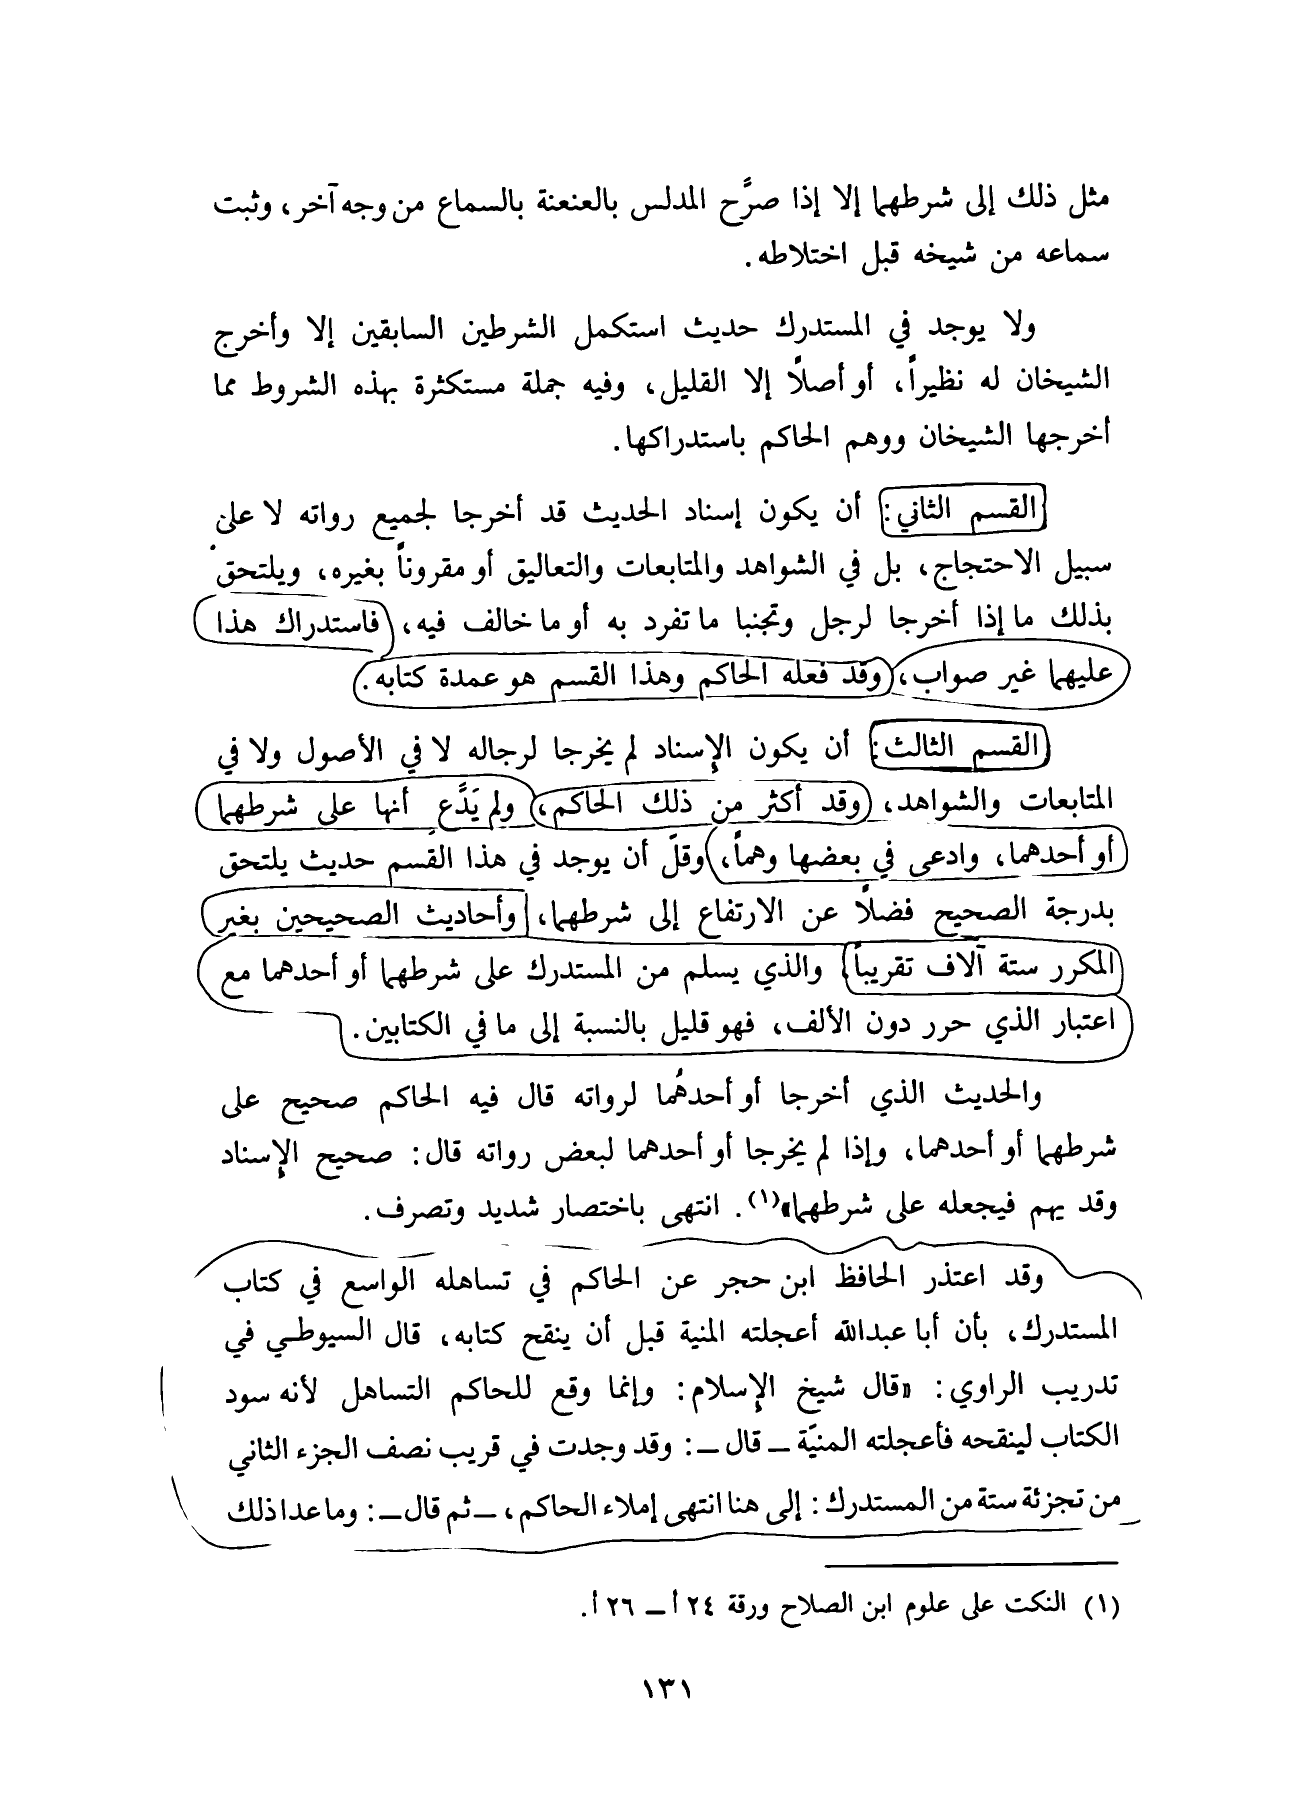 مثل ذلك إلى شرطهما إلا إذا صرَّح المدلس بالعنعنة بالسماع من وجه آخر، وثبت
سماعه من شيخه قبل اختلاطه.
ولا يوجد في المستدرك حديث استكمل الشرطين السابقين إلا وأخرج
الشيخان له نظيراً، أو أصلاً إلا القليل، وفيه جملة مستكثرة بهذه الشروط مما
أخرجها الشيخان ووهم الحاكم باستدراكها.
القسم الثاني: أن يكون إسناد الحديث قد أخرجا لجميع رواته لا على
سبيل الاحتجاج، بل في الشواهد والمتابعات والتعاليق أو مقروناً بغيره، ويلتحق
بذلك ما إذا أخرجا لرجل وتجنبا ما تفرد به أو ما خالف فيه، فاستدراك هذا
عليهما غير صواب، وقد فعله الحاكم وهذا القسم هو عمدة كتابه.
القسم الثالث: أن يكون الإسناد لم يخرجا لرجاله لا في الأصول ولا في
المتابعات والشواهد، وقد أكثر من ذلك الحاكم، ولم يَدَّع أنها على شرطهما
أو أحدهما، وادعى في بعضها وهماً، وقلّ أن يوجد في هذا القسم حديث يلتحق
بدرجة الصحيح فضلاً عن الارتفاع إلى شرطهما، وأحاديث الصحيحين بغير
المكرر ستة آلاف تقريباً والذي يسلم من المستدرك على شرطهما أو أحدهما مع
اعتبار الذي حرر دون الألف، فهو قليل بالنسبة إلى ما في الكتابين.
والحديث الذي أخرجا أو أحدهُما لرواته قال فيه الحاكم صحيح على
شرطهما أو أحدهما، وإذا لم يخرجا أو أحدهما لبعض رواته قال: صحيح الإسناد
وقد يهم فيجعله على شرطهما»(١). انتهى باختصار شديد وتصرف.
وقد اعتذر الحافظ ابن حجر عن الحاكم في تساهله الواسع في كتاب
المستدرك، بأن أبا عبدالله أعجلته المنية قبل أن ينقح كتابه، قال السيوطي في
تدريب الراوي: «قال شيخ الإسلام: وإنما وقع للحاكم التساهل لأنه سود
الكتاب لينقحه فأعجلته المنيّة – قال –: وقد وجدت في قريب نصف الجزء الثاني
من تجزئة ستة من المستدرك: إلى هنا انتهى إملاء الحاكم، – ثم قال –: وما عدا ذلك
(١) النكت على علوم ابن الصلاح ورقة ٢٤ أ – ٢٦ أ.
١٣١